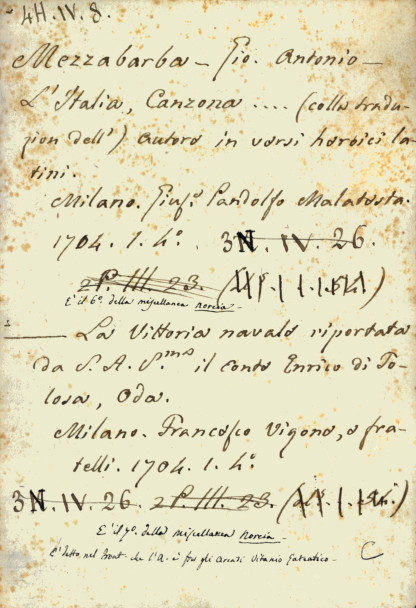 4H. IV. 8.
Mezzabarba - Gio. Antonio -
L'Italia, Canzona .... (colla tradu-
zion dell') autore in versi heroici la-
tini.
Milano. Giuse. Pandolfo Malatesta.
1704. 1. 4o. 3N. IV. 26.
2P. III. 23.
È il 6o. della miscellanea Norcia
La Vittoria navale riportata
da S. A. S.ma il Conte Enrico di To-
losa, Oda.
Milano. Francesco Vigone, e fra-
telli. 1704. 1. 4o.
3N. IV. 26. 2P. III. 23.
E' il 7o. della miscellanea Norcia
che l'A. è fra gli Arcadi
C